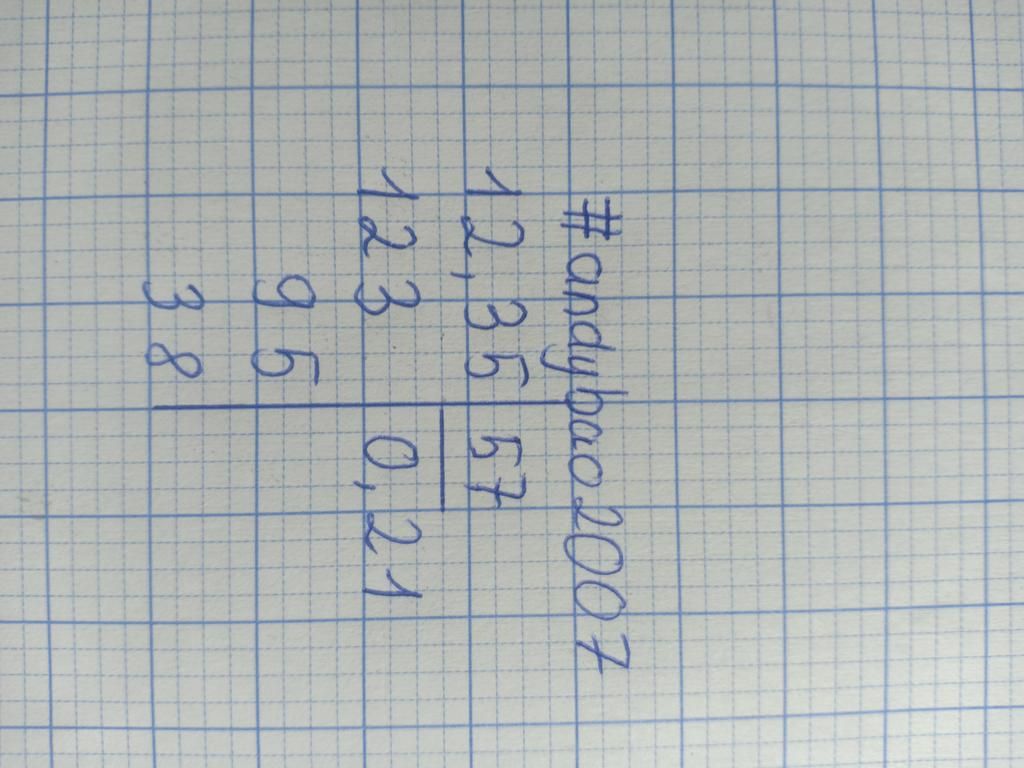 #andybao2007
12,35 57
123 0,21
95
38